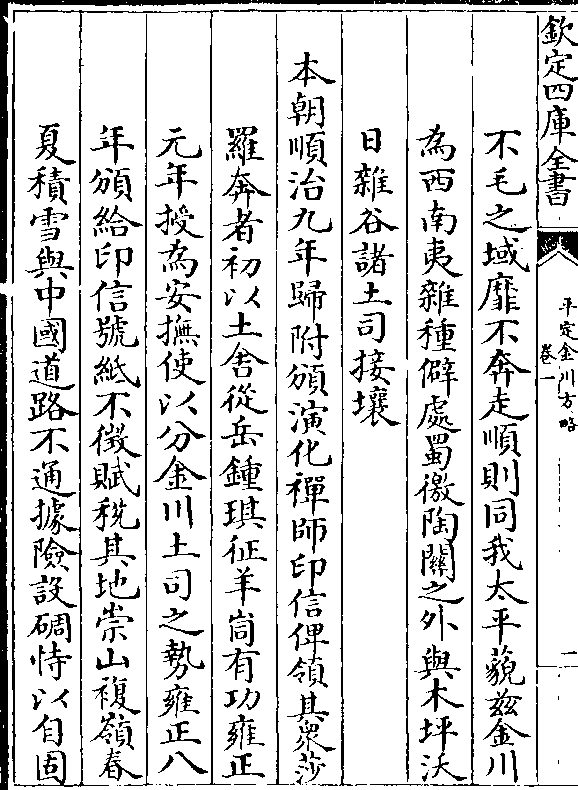 欽定四庫全書
平定金川方略
卷一
一
不毛之域靡不奔走順則同我太平藐兹金川
為西南夷雜種僻處蜀徼陶關之外與木坪沃
日雜谷諸土司接壤
本朝順治九年歸附頒演化禪師印信俾領其衆莎
羅奔者初以土舍從岳鍾琪征羊峝有功雍正
元年授為安撫使以分金川土司之勢雍正八
年頒給印信號紙不徴賦税其地崇山複嶺春
夏積雪與中國道路不通據險設碉恃以自固